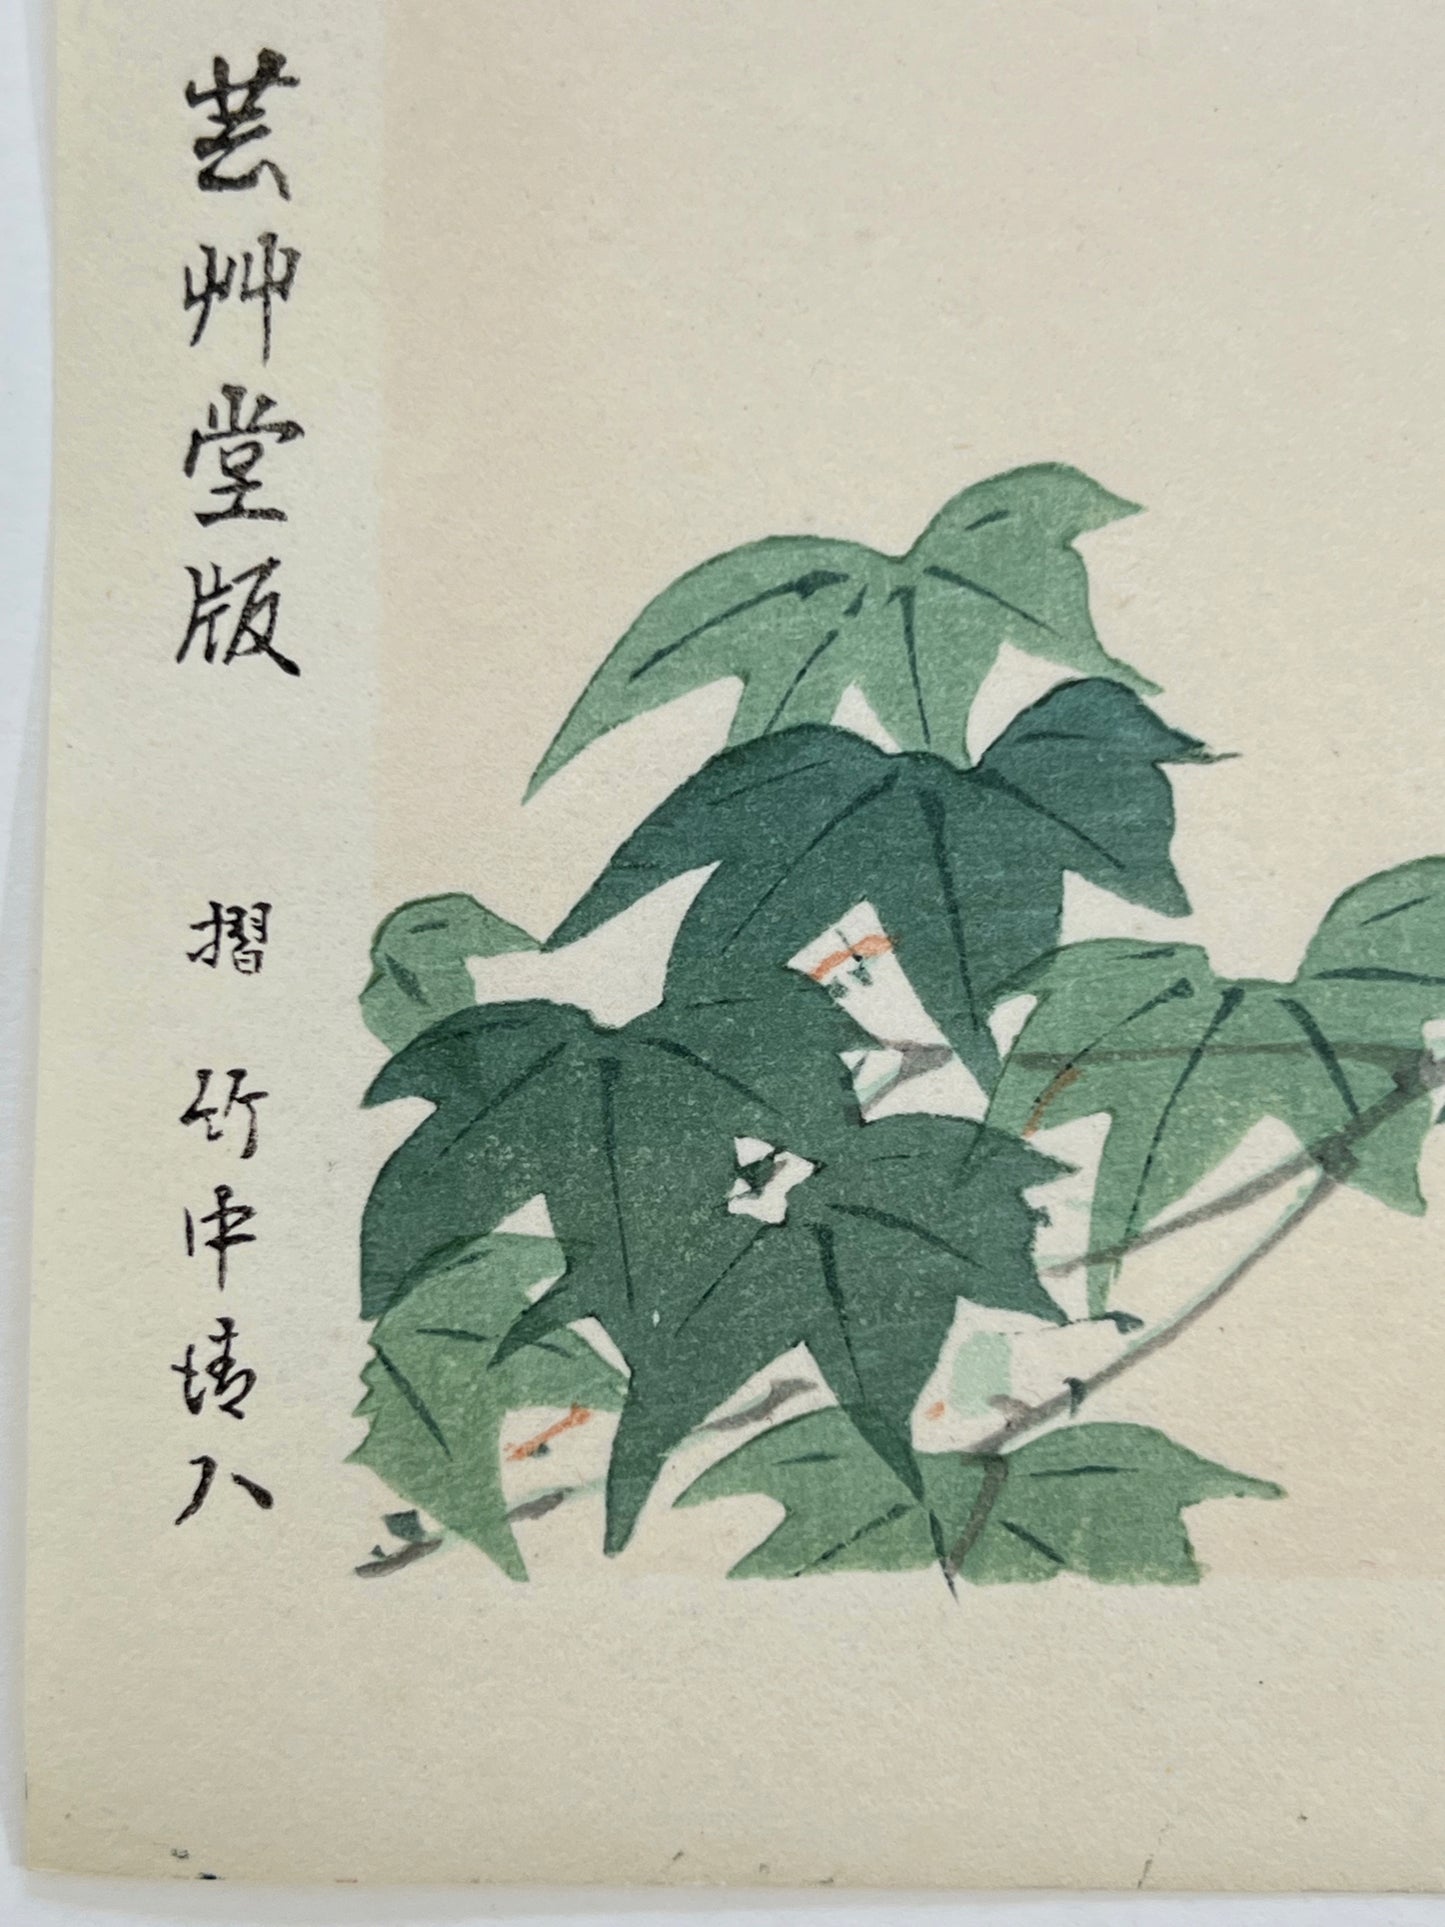 芸艸堂版 摺 竹中清八